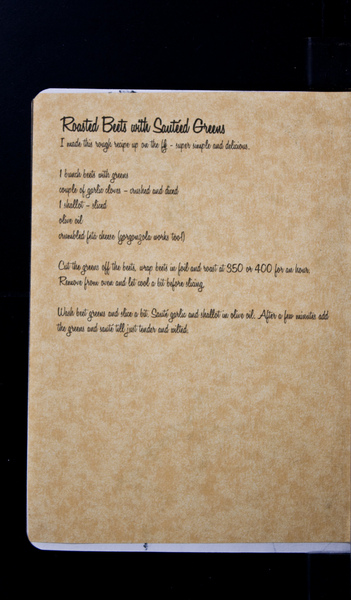 Roasted Beets with Sautéed Greens
I made this rough recipe up on the fly - super simple and delicious.
1 bunch beets with greens
couple of garlic cloves - crushed and diced
1 shallot - sliced
olive oil
crumbled feta cheese (gorgonzola works too!)
Cut the greens off the beets, wrap beets in foil and roast at 350 or 400 for an hour.
Remove from oven and let cool a bit before slicing.
Wash beet greens and slice a bit. Sauté garlic and shallot in olive oil. After a few minutes add
the greens and sauté till just tender and wilted.